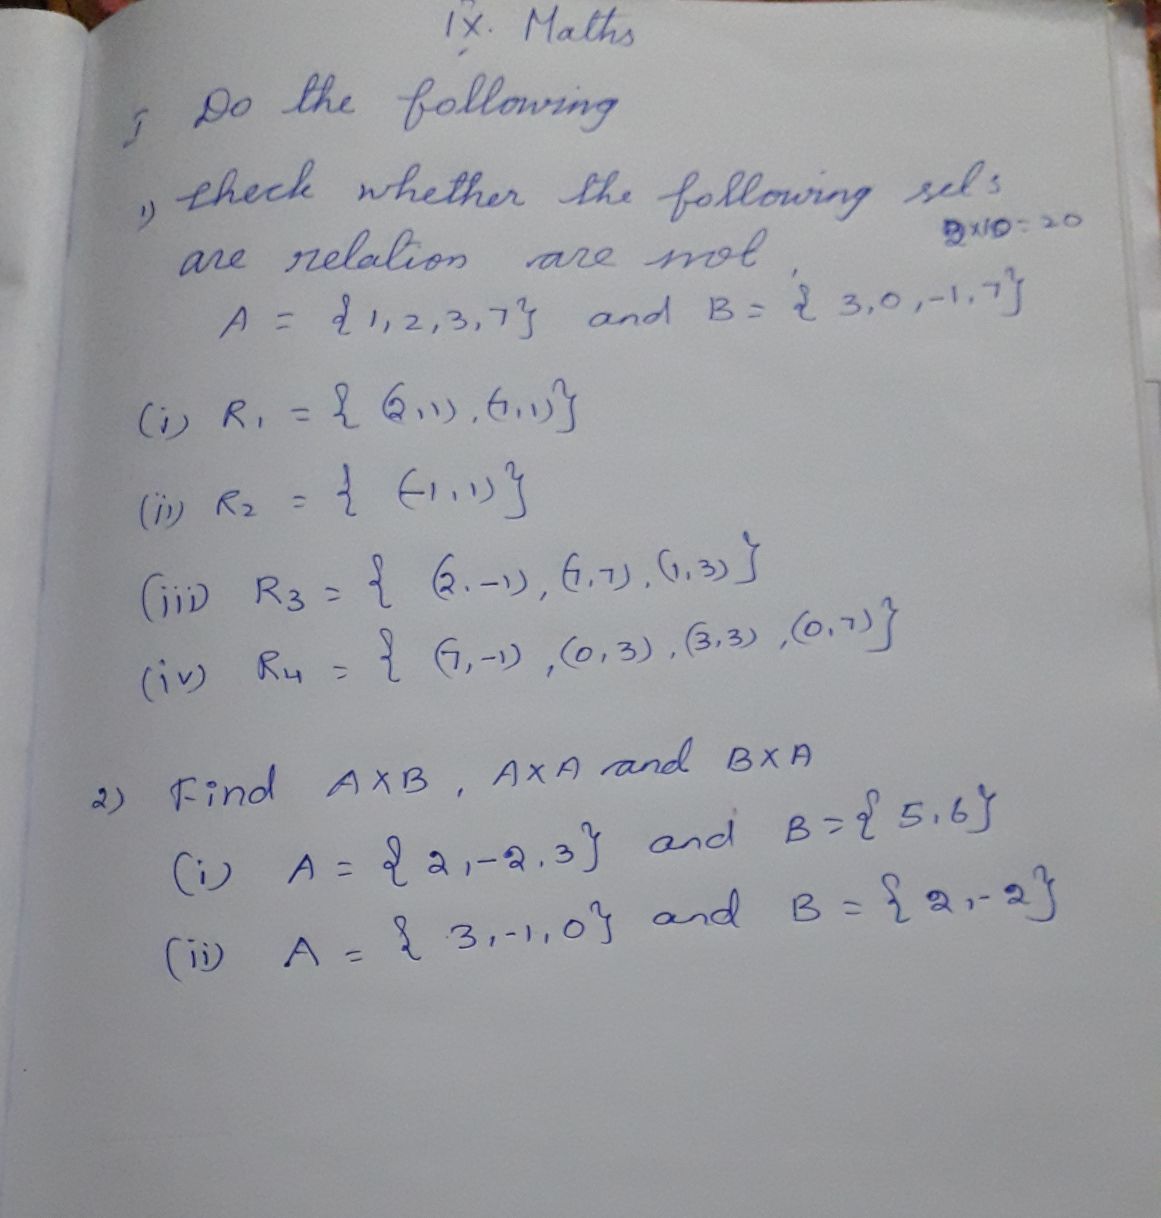 IX. Maths
I Do the following
1) check whether the following sets
2x10=20
are relation are not
A = {1,2,3,7} and B = {3,0,-1,7}
(i) R1 = {(2,1),(7,1)}
(ii) R2 = {(-1,1)}
(iii) R3 = {(2,-1),(7,7),(1,3)}
(iv) R4 = {(7,-1),(0,3),(3,3),(0,7)}
2) Find AXB, AXA and BXA
(i) A = {2,-2,3} and B={5,6}
(ii) A = {3,-1,0} and B = {2,-2}